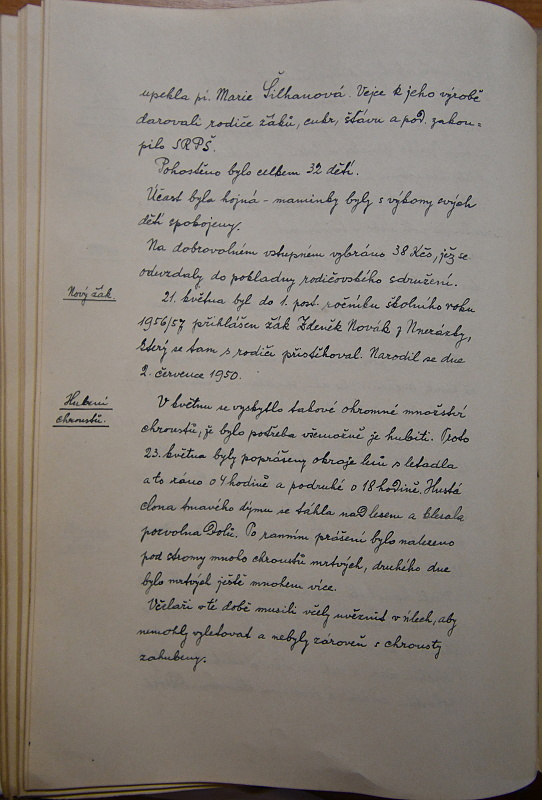 upekla pí. Marie Šilhanová. Vejce k jeho výrobě
darovali rodiče žáků, cukr, šťávu a pod. zakou=
pilo SRPŠ.
Pohoštěno bylo celkem 32 dětí.
Účast byla hojná - maminky byly s výkony svých
dětí spokojeny.
Na dobrovolném vstupném vybráno 38 Kčs, jež se
odevzdaly do pokladny rodičovského sdružení.
Nový žák
21. května byl do 1. post. ročníku školního roku
1956/57 přihlášen žák Zdeněk Novák z Mnerázky,
který se tam s rodiči přistěhoval. Narodil se dne
2. července 1950.
Hubení
chroustů.
V květnu se vyskytlo takové ohromné množství
chroustů, že bylo potřeba všemožně je hubiti. Proto
23. května byly poprášeny okraje lesů s letadla
a to ráno o 4 hodině a podruhé o 18 hodině. Hustá
clona tmavého dýmu se táhla nad lesem a klesala
pozvolna dolů. Po ranním prášení bylo nalezeno
pod stromy mnoho chroustů mrtvých, druhého dne
bylo mrtvých ještě mnohem více.
Včelaři v té době musili včely uvěznit v úlech, aby
nemohly vyletovat a nebyly zároveň s chrousty
zahubeny.